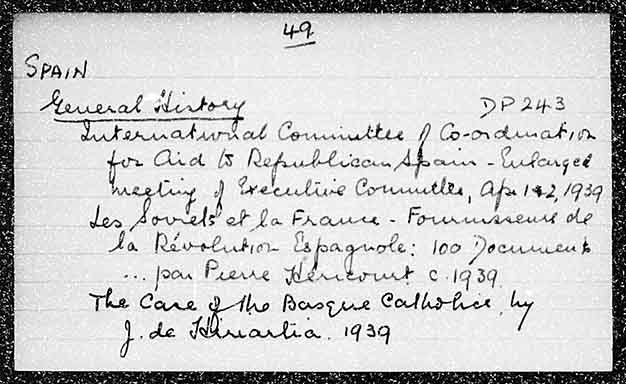 49
SPAIN
General History DP243
International Committee of Co-ordination
for Aid to Republican Spain - Enlarged
meeting of Executive Committee, Apr 1+2, 1939
Les Soviets et la France - Fournisseurs de
la Révolution Espagnole: 100 Documents
... par Pierre Héricourt c.1939
The Case of the Basque Catholics by
J. de 1939